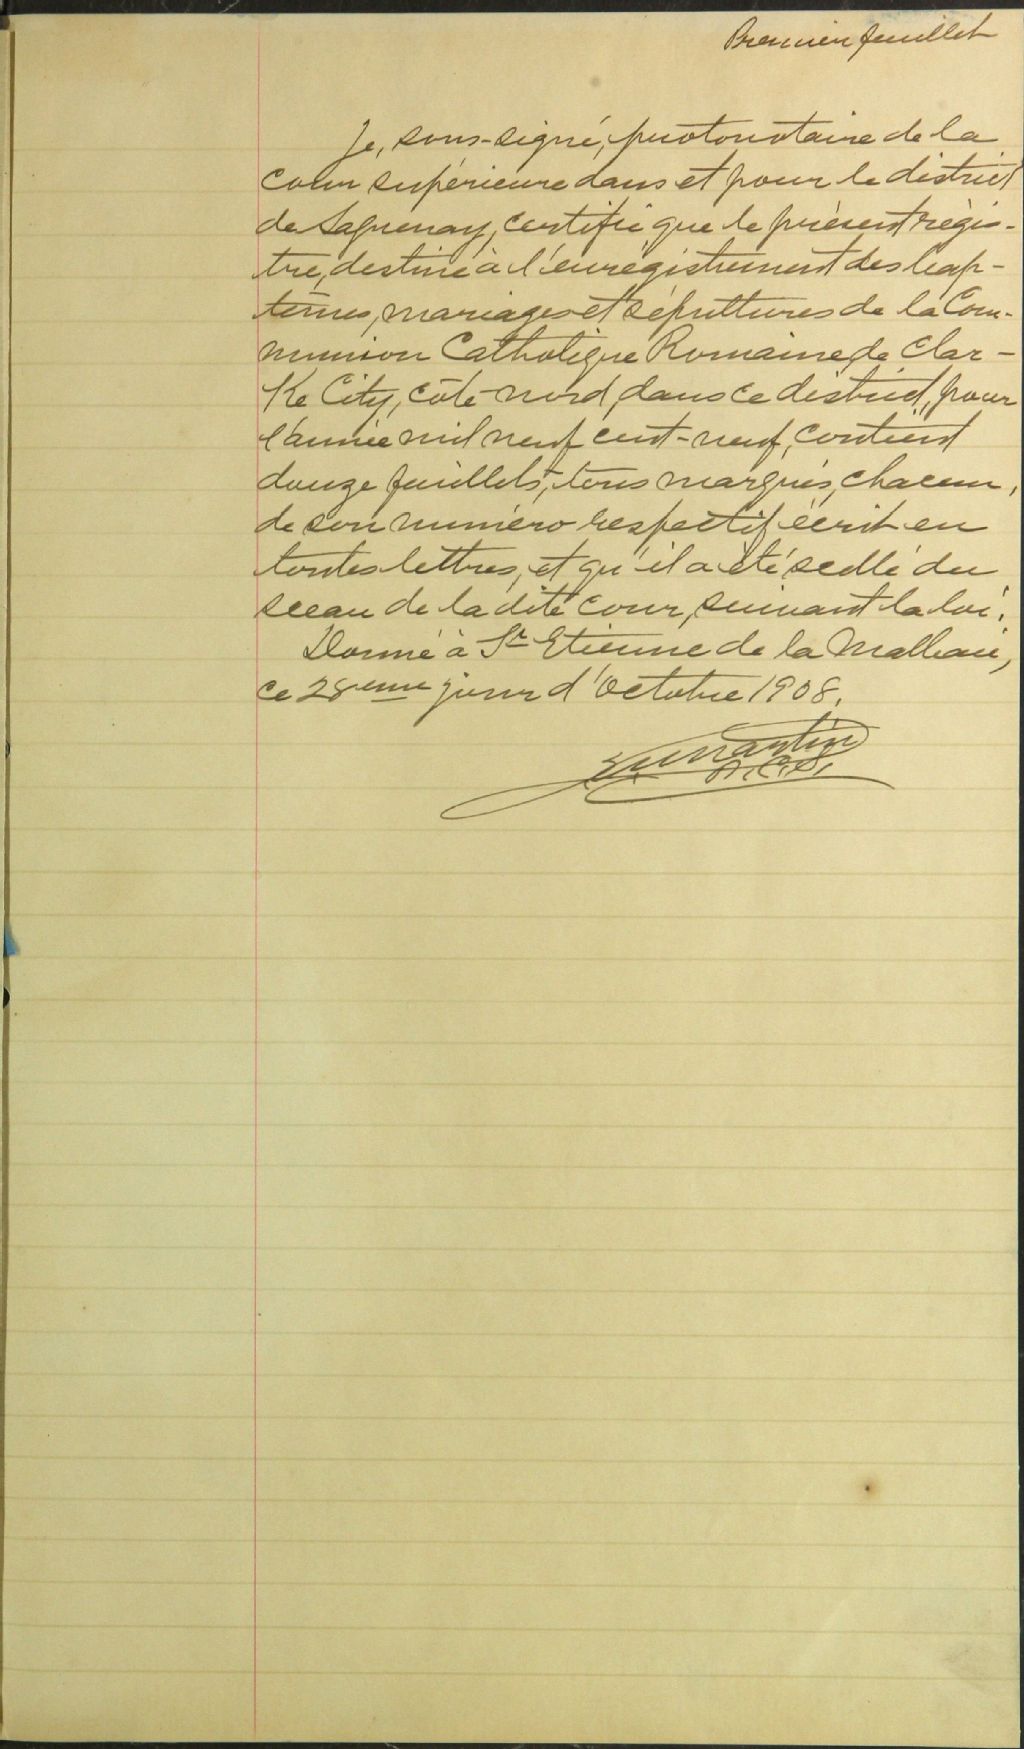 Premier feuillet
Je, sous-signé, protonotaire de la
cour supérieure dans et pour le district
de Saguenay, certifie que le présent régis-
tre, destiné à l'enrégistrement des bap-
têmes, mariages et sépultures de la Com-
munion Catholique Romaine de Clar-
ke City, côte-nord, dans ce district, pour
l'année mil neuf cent-neuf, contient
douze feuillets, tous marqués, chacun,
de son numéro respectif écrit en
toutes lettres, et qu'il a été scellé du
sceau de la dite cour, suivant la loi.
Donné à St Etienne de la Malbaie,
ce 28eme jour d'Octobre 1908.
Martin
P.C.S.